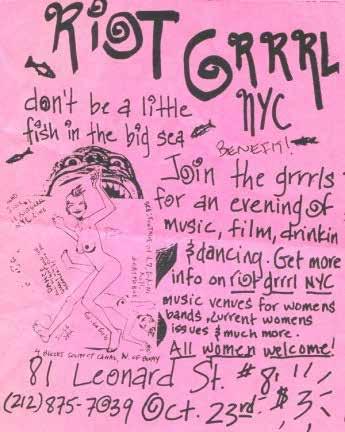 RiOT GRRRL
NYC
don't be a little
fish in the big sea
BENEFIT!
Join the grrrls
for an evening of
music, film, drinkin
& dancing. Get more
info on riot grrrl NYC
music venues for womens
bands, current womens
issues & much more.
All women welcome!
4 BLOCKS SOUTH OF CANAL, N. OF
81 Leonard St. #8
(212)875-7039 Oct. 23rd. $3